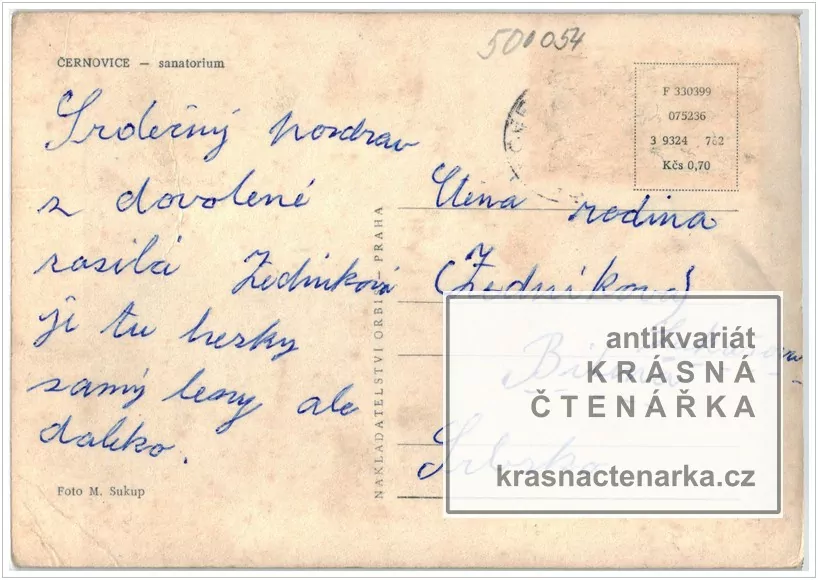 500054
ČERNOVICE — sanatorium
F 330399
075236
3 9324 762
Kčs 0,70
Srdečný pozdrav
z dovolené
zasílá Zedníková
je tu hezky
samý lesy ale
daleko.
Foto M. Sukup
NAKLADATELSTVÍ ORBIS — PRAHA
rodina
(Zedníkova)
antikvariát
KRÁSNÁ
ČTENÁŘKA
krasnactenarka.cz